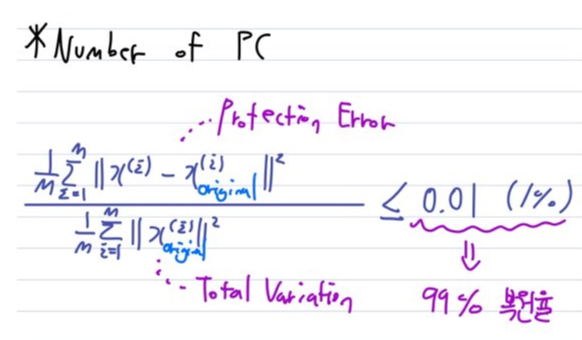 *Number of PC
Projection Error
\frac{\frac{1}{m}\sum_{i=1}^{m} \| x^{(i)} - x^{(i)}_{original} \|^2}{\frac{1}{m}\sum_{i=1}^{m} \| x^{(i)}_{original} \|^2} \leq 0.01 (1%)
Total Variation
⇓
99% 복원율